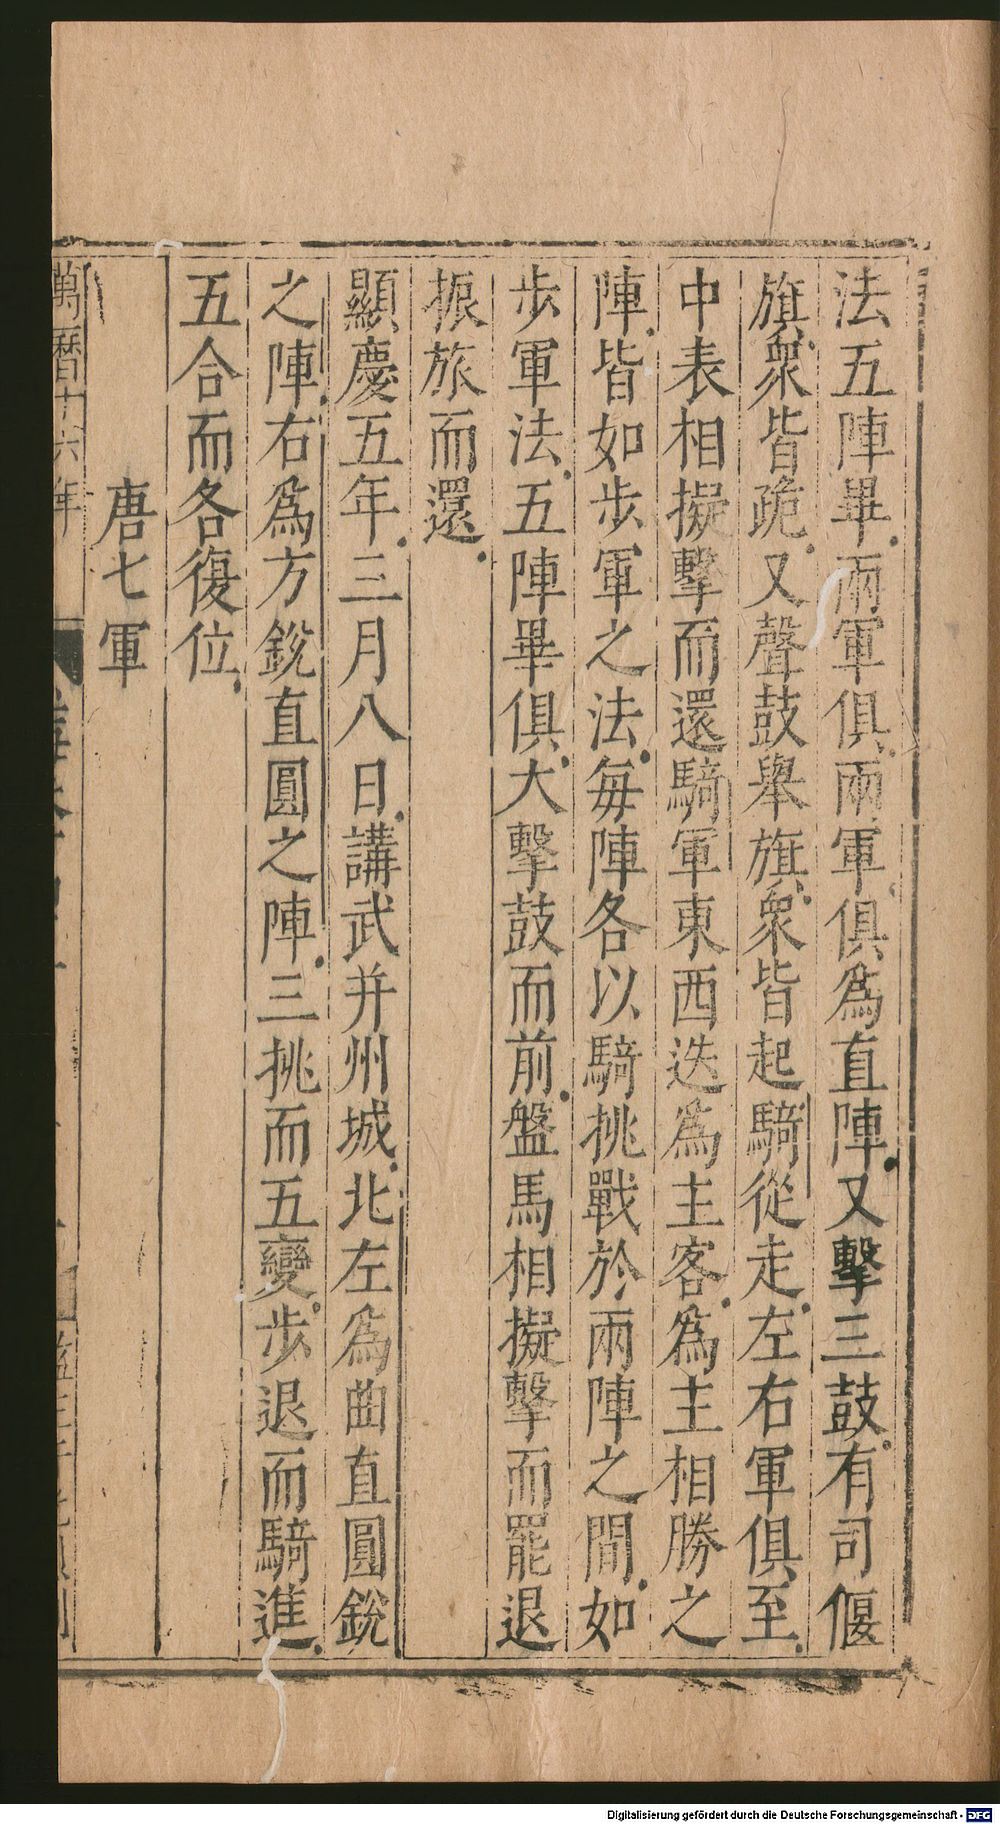 法五陣畢兩軍俱兩軍俱爲直陣又擊三鼓有司偃
旗衆皆跪又聲鼓舉旗衆皆起騎從走左右軍俱至
中表相擬擊而還騎軍東西迭爲主客爲主相勝之
陣皆如步軍之法每陣各以騎挑戰於兩陣之間如
步軍法五陣畢俱大擊鼓而前盤馬相擬擊而罷退
振旅而還
顯慶五年三月八日講武并州城北左爲曲直圓銳
之陣右爲方銳直圓之陣三挑而五變步退而騎進
五合而各復位
唐七軍
萬曆十六年
Digitalisierung gefördert durch die Deutsche Forschungsgemeinschaft - DFG